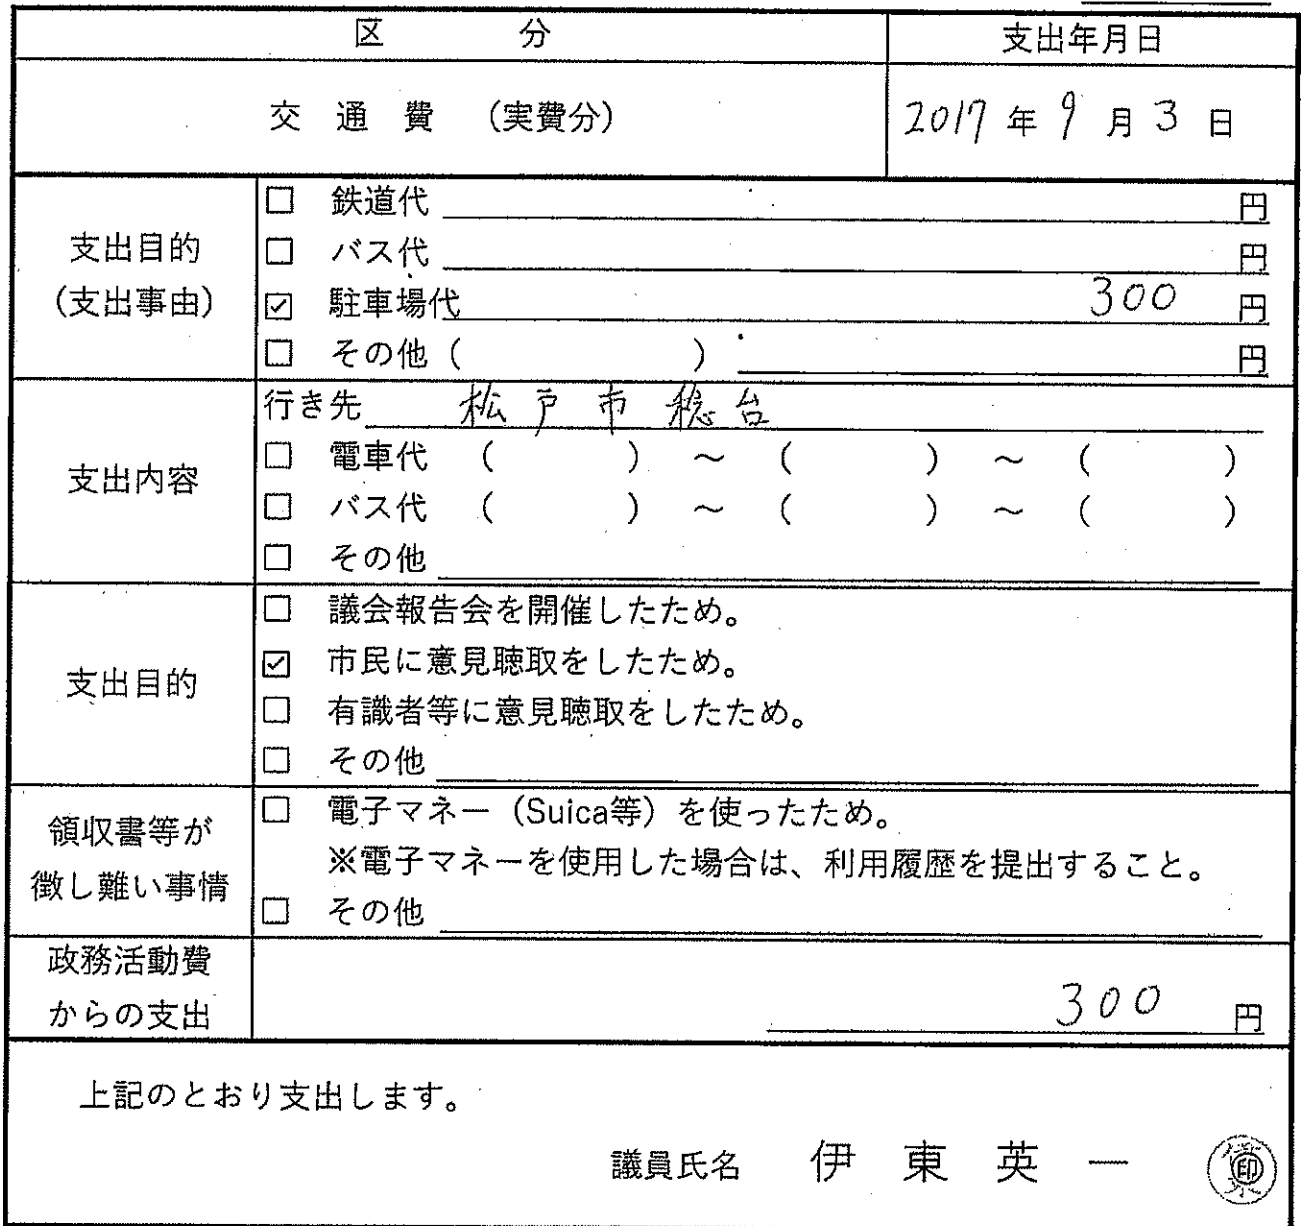 区 分 支出年月日
交通費 (実費分) 2017年9月3日
支出目的
(支出事由)
□ 鉄道代 円
□ バス代 円
☑ 駐車場代 300 円
□ その他 ( ) 円
支出内容
行き先 松戸市稔台
□ 電車代 ( ) ~ ( ) ~ ( )
□ バス代 ( ) ~ ( ) ~ ( )
□ その他
支出目的
□ 議会報告会を開催したため。
☑ 市民に意見聴取をしたため。
□ 有識者等に意見聴取をしたため。
□ その他
領収書等が
徴し難い事情
□ 電子マネー(Suica等)を使ったため。
※電子マネーを使用した場合は、利用履歴を提出すること。
□ その他
政務活動費
からの支出
300 円
上記のとおり支出します。
議員氏名 伊東英一 印